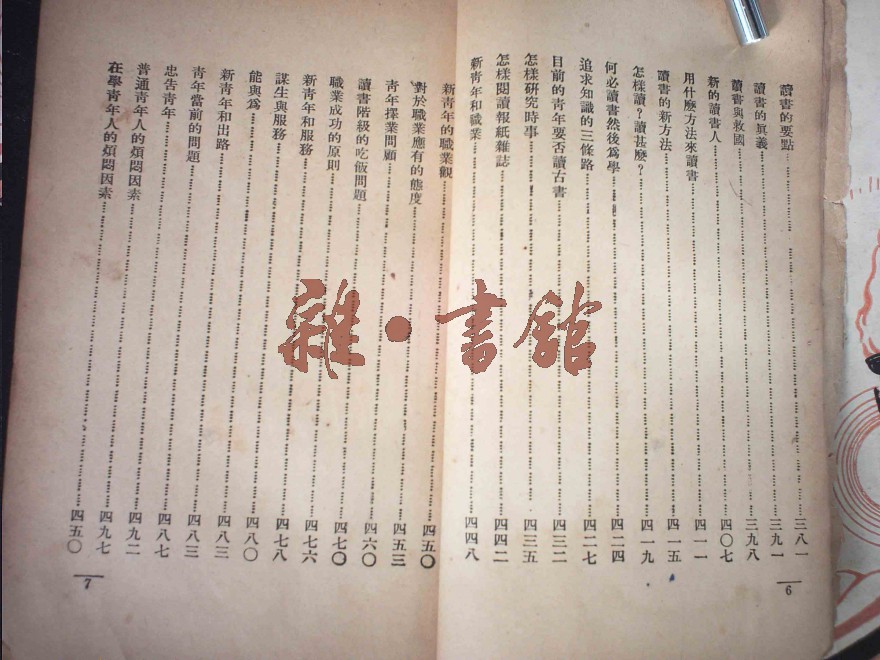 讀書的要點……三八一
讀書的眞義……三九一
讀書與救國……三九八
新的讀書人……四〇七
用什麽方法來讀書……四一一
讀書的新方法……四一五
怎樣讀？讀甚麽？……四一九
何必讀書然後爲學……四二四
追求知識的三條路……四二七
目前的青年要否讀古書……四三二
怎樣研究時事……四三五
怎樣閱讀報紙雜誌……四四二
新青年和職業……四四八
6
新青年的職業觀……四五〇
對於職業應有的態度……四五三
青年擇業問題……四六〇
讀書階級的吃飯問題……四七〇
職業成功的原則……四七六
新青年和服務……四七八
謀生與服務……四八〇
能與爲……四八三
新青年和出路……四八三
青年當前的問題……四八七
忠吿青年……四九二
普通青年人的煩悶因素……四九七
在學青年人的煩悶因素……四五〇
7
雜·書館